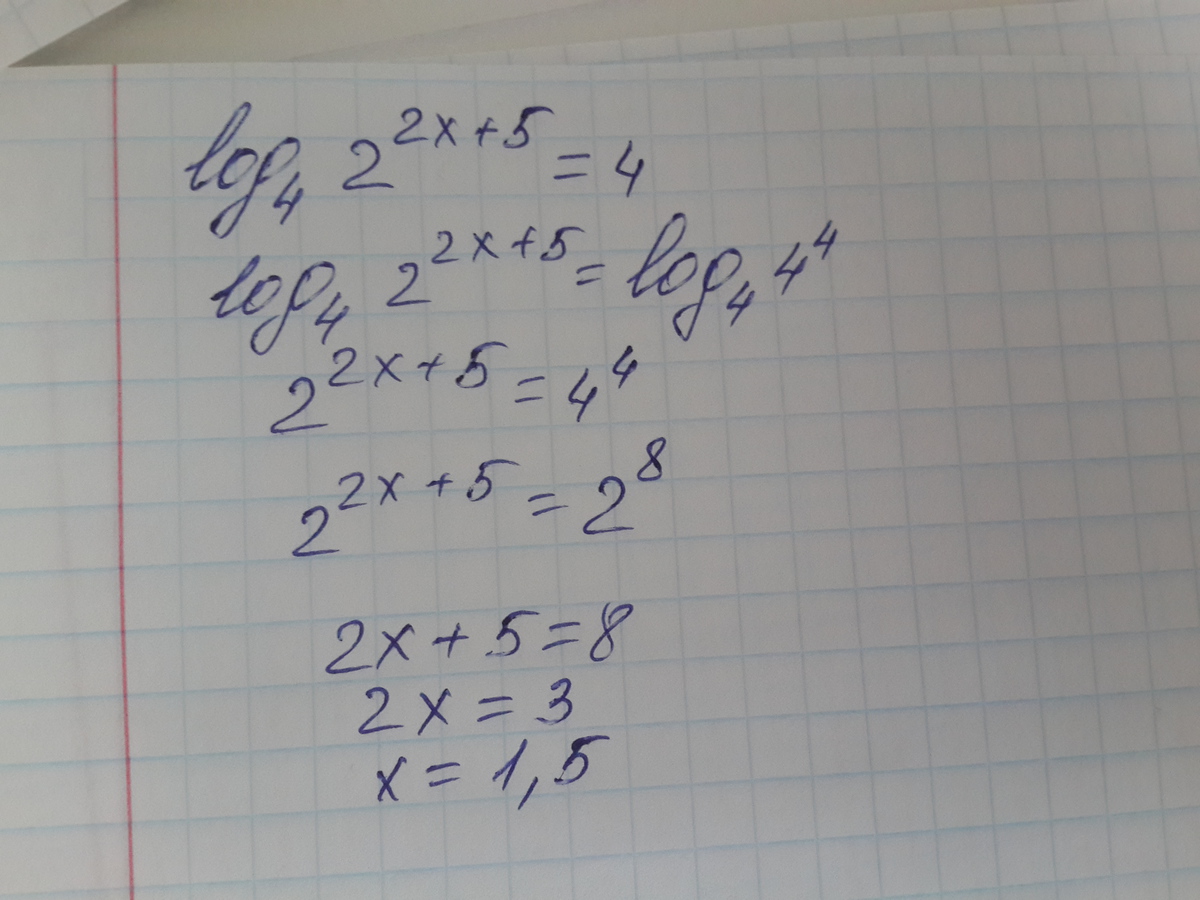 log₄ 2^(2x+5) = 4
log₄ 2^(2x+5) = log₄ 4⁴
2^(2x+5) = 4⁴
2^(2x+5) = 2⁸
2x + 5 = 8
2x = 3
x = 1,5